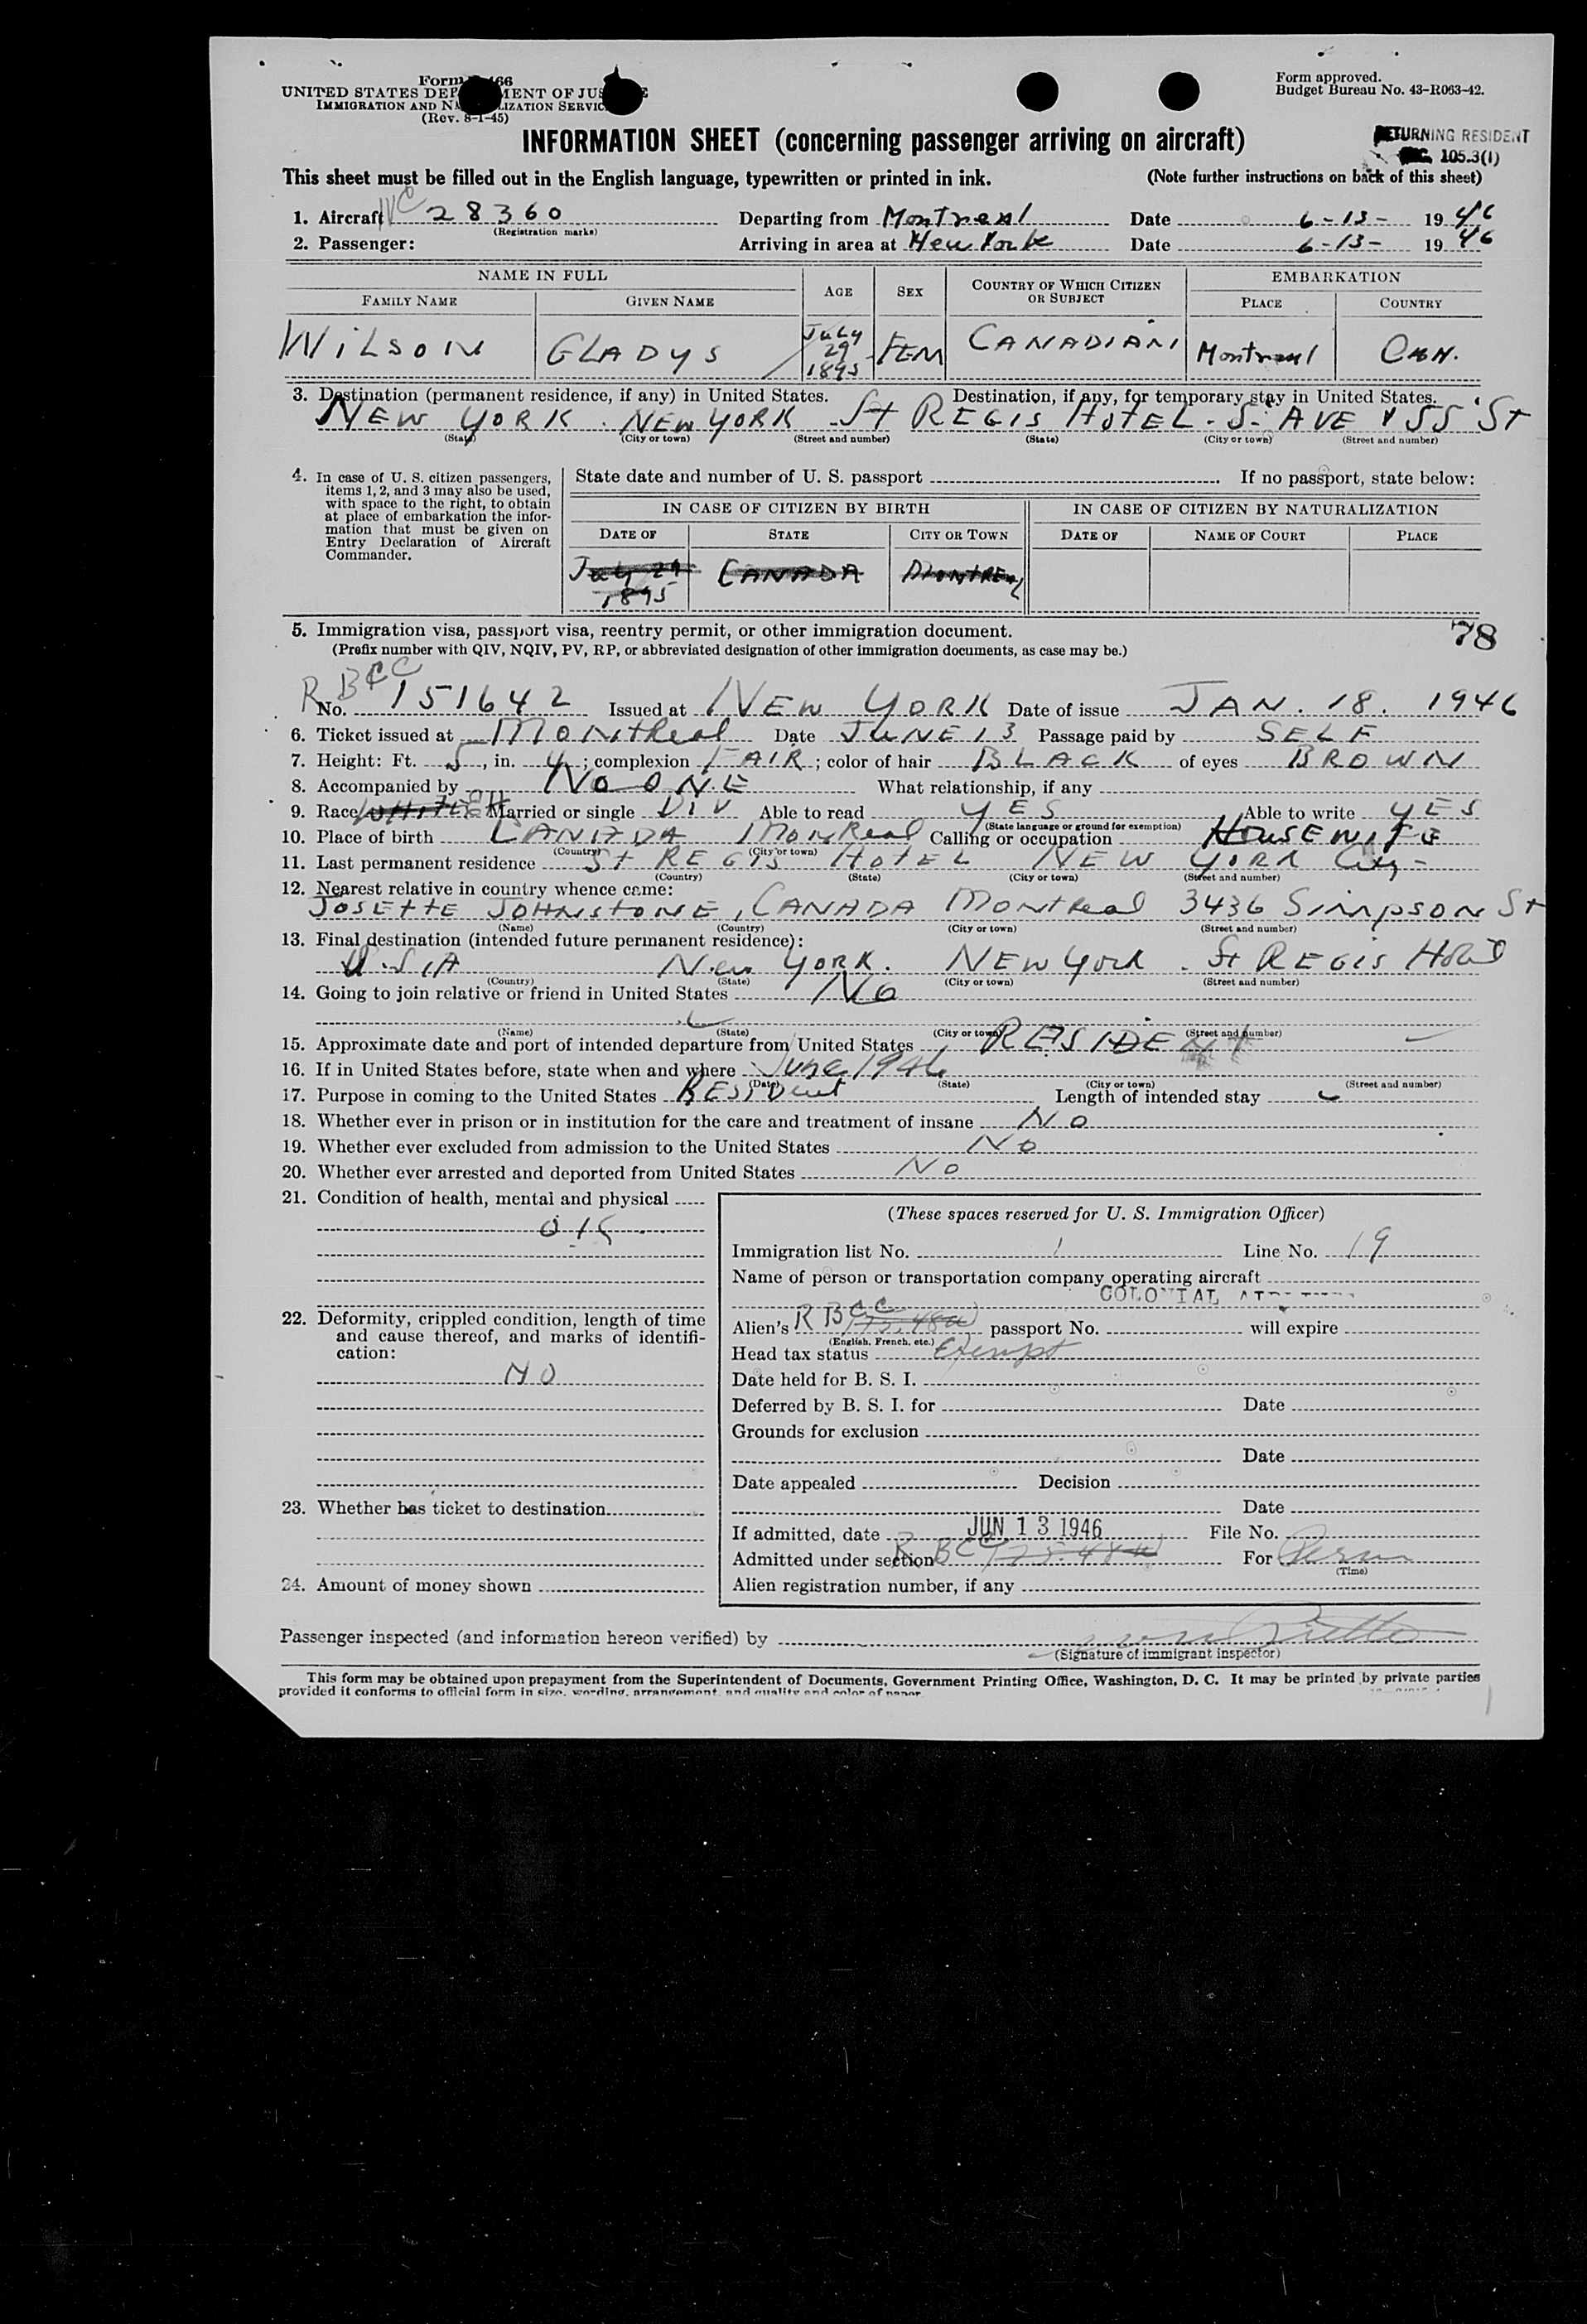 Form 466
UNITED STATES DEPARTMENT OF JUSTICE
IMMIGRATION AND NATURALIZATION SERVICE
(Rev. 8-1-45)
Form approved.
Budget Bureau No. 43-R063-42.
INFORMATION SHEET (concerning passenger arriving on aircraft)
RETURNING RESIDENT
105.3(1)
This sheet must be filled out in the English language, typewritten or printed in ink. (Note further instructions on back of this sheet)
1. Aircraft NC 28360 Departing from Montreal Date 6-13- 1946
(Registration marks)
2. Passenger: Arriving in area at New York Date 6-13- 1946
NAME IN FULL AGE SEX COUNTRY OF WHICH CITIZEN OR SUBJECT EMBARKATION
FAMILY NAME GIVEN NAME PLACE COUNTRY
WILSON GLADYS July 29 1895 FEM CANADIAN Montreal CAN.
3. Destination (permanent residence, if any) in United States. Destination, if any, for temporary stay in United States.
NEW YORK. NEW YORK St REGIS HOTEL. 5. AVE & 55 St
(State) (City or town) (Street and number) (State) (City or town) (Street and number)
4. In case of U. S. citizen passengers, items 1, 2, and 3 may also be used, with space to the right, to obtain at place of embarkation the information that must be given on Entry Declaration of Aircraft Commander.
State date and number of U. S. passport If no passport, state below:
IN CASE OF CITIZEN BY BIRTH IN CASE OF CITIZEN BY NATURALIZATION
DATE OF STATE CITY OR TOWN DATE OF NAME OF COURT PLACE
July 29 1895 CANADA MONTREAL
5. Immigration visa, passport visa, reentry permit, or other immigration document. 78
(Prefix number with QIV, NQIV, PV, RP, or abbreviated designation of other immigration documents, as case may be.)
RBCC
No. 151642 Issued at NEW YORK Date of issue JAN. 18. 1946
6. Ticket issued at MONTReal Date JUNE 13 Passage paid by SELF
7. Height: Ft. 5, in. 4; complexion FAIR; color of hair BLACK of eyes BROWN
8. Accompanied by NO ONE What relationship, if any
9. Race WHITE Married or single DIV Able to read YES Able to write YES
(State language or ground for exemption)
10. Place of birth CANADA MONTReal Calling or occupation HOUSEWIFE
(Country) (City or town)
11. Last permanent residence St REGIS HOTEL NEW YORK City-
(Country) (State) (City or town) (Street and number)
12. Nearest relative in country whence came:
JOSETTE JOHNSTONE, CANADA MONTReal 3436 SIMPSON St
(Name) (Country) (City or town) (Street and number)
13. Final destination (intended future permanent residence):
U.S.A New YORK. NEW York. St REGIS Hotel
(Country) (State) (City or town) (Street and number)
14. Going to join relative or friend in United States No
(Name) (State) (City or town) (Street and number)
15. Approximate date and port of intended departure from United States RESIDENT
16. If in United States before, state when and where June 1946
(Date) (State) (City or town) (Street and number)
17. Purpose in coming to the United States RESIDent Length of intended stay
18. Whether ever in prison or in institution for the care and treatment of insane NO
19. Whether ever excluded from admission to the United States NO
20. Whether ever arrested and deported from United States NO
21. Condition of health, mental and physical
OK
22. Deformity, crippled condition, length of time and cause thereof, and marks of identification:
NO
23. Whether has ticket to destination
24. Amount of money shown
(These spaces reserved for U. S. Immigration Officer)
Immigration list No. 1 Line No. 19
Name of person or transportation company operating aircraft
COLONIAL
Alien's RBCC 175.48a passport No. will expire
(English, French, etc.)
Head tax status Exempt
Date held for B. S. I.
Deferred by B. S. I. for Date
Grounds for exclusion
Date
Date appealed Decision
Date
If admitted, date JUN 13 1946 File No.
Admitted under section RBCC 175.48a For Perm
(Time)
Alien registration number, if any
Passenger inspected (and information hereon verified) by
(Signature of immigrant inspector)
This form may be obtained upon prepayment from the Superintendent of Documents, Government Printing Office, Washington, D. C. It may be printed by private parties
provided it conforms to official form in size, wording, arrangement, and quality and color of paper.